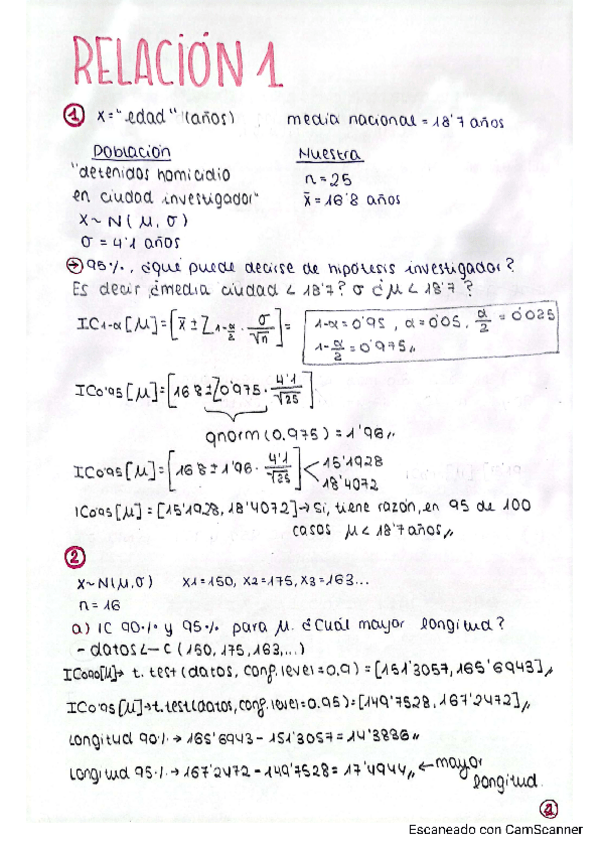 RELACIÓN 1
① X="edad" (años) media nacional = 18'7 años
Población Nuestra
"detenidos homicidio n=25
en ciudad investigador" x̄=16'8 años
X~N(μ,σ)
σ=4'1 años
→95%, ¿qué puede decirse de hipótesis investigador?
Es decir, ¿media ciudad < 18'7? o ¿μ < 18'7?
IC1-α[μ]=[x̄±Z1-α/2·σ/√n]= 1-α=0'95, α=0'05, α/2=0'025
1-α/2=0'975,,
IC0'95[μ]=[16'8±Z0'975·4'1/√25]
qnorm(0.975)=1'96,,
IC0'95[μ]=[16'8±1'96·4'1/√25]< 15'1928
18'4072
IC0'95[μ]=[15'1928, 18'4072]→Sí, tiene razón, en 95 de 100
casos μ<18'7 años,,
②
X~N(μ,σ) X1=150, X2=175, X3=163...
n=16
a) IC 90% y 95% para μ. ¿Cuál mayor longitud?
- datos<-c(150, 175, 163,...)
IC0'90[μ]→ t.test(datos, conf.level=0.9)=[151'3057, 165'6943],,
IC0'95[μ]→t.test(datos, conf.level=0.95)=[149'7528, 167'2472],,
Longitud 90%→165'6943-151'3057=14'3886,,
Longitud 95%→167'2472-149'7528=17'4944,, ←mayor
longitud.
①
Escaneado con CamScanner